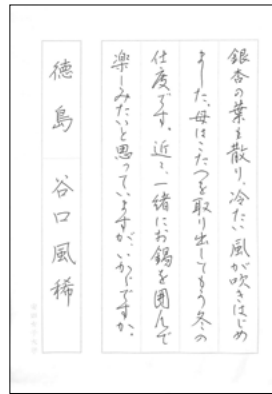 銀杏の葉も散り、冷たい風が吹きはじめ
ました。母はこたつを取り出してもう冬の
仕度です。近々一緒にお鍋を囲んで
楽しみたいと思っていますが、いかがですか。
徳島 谷口風稀